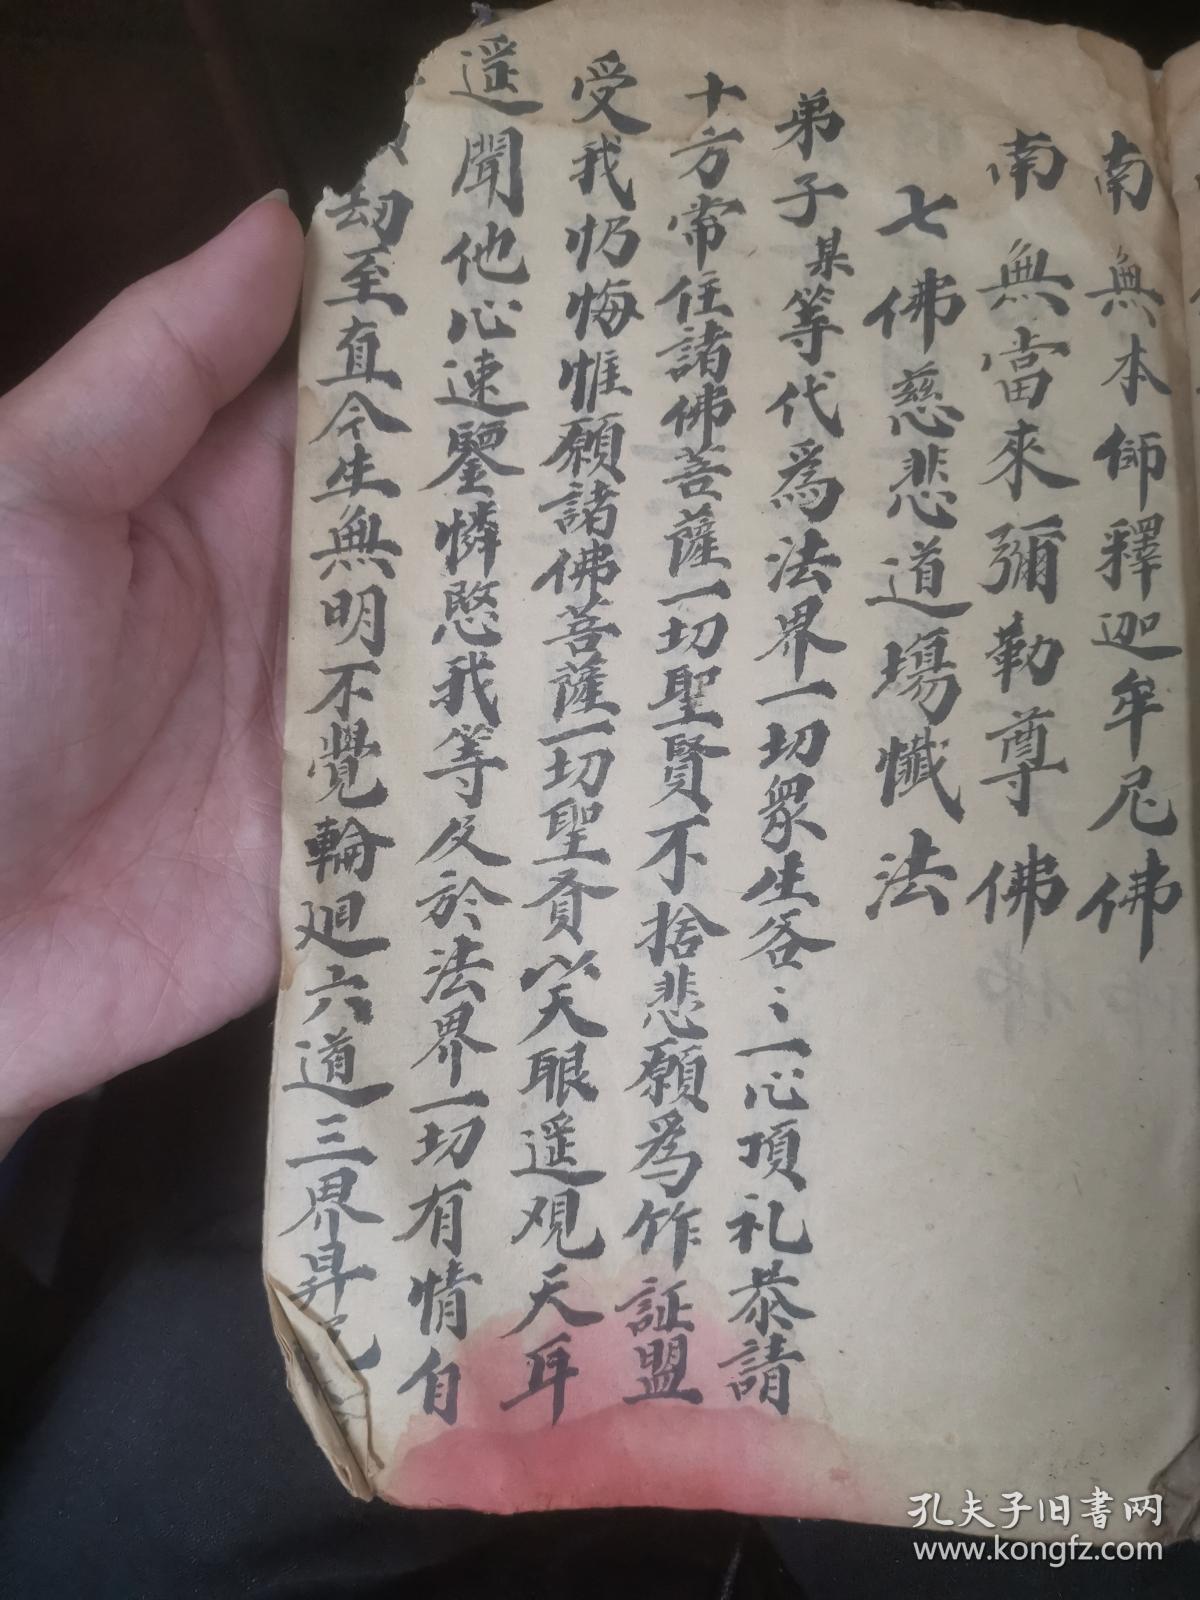 南無本師釋迦牟尼佛
南無當來彌勒尊佛
七佛慈悲道場懺法
弟子某等代爲法界一切眾生各〻一心項礼恭請
十方常住諸佛菩薩一切聖賢不捨悲願為作証盟
受我忏悔惟願諸佛菩薩一切聖賢天眼遥观天耳
遥聞他心速鑒憐愍我等及於法界一切有情自
劫至直今生無明不覺輪廻六道三界昇
孔夫子旧书网
www.kongfz.com